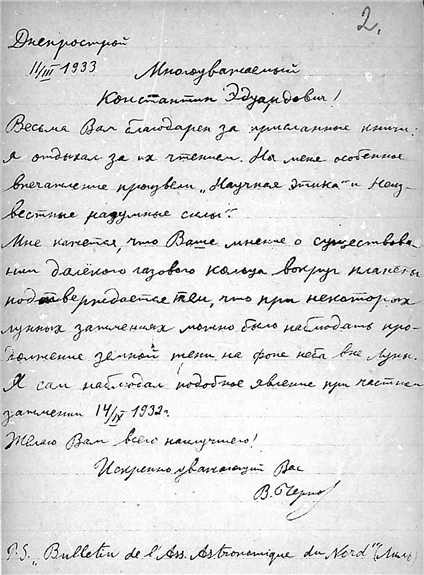 2.
Днепрострой
11/III 1933
Многоуважаемый
Константин Эдуардович!
Весьма Вам благодарен за присланные книги:
я отдыхал за их чтением. На меня особенное
впечатление произвели „Научная этика" и Неиз-
вестные разумные силы".
Мне кажется, что Ваше мнение о существова-
нии далёкого газового кольца вокруг планеты
подтверждается тем, что при некоторых
лунных затмениях можно было наблюдать про-
должение земной тени на фоне неба вне Луны.
Я сам наблюдал подобное явление при частном
затмении 14/IX 1932г.
Желаю Вам всего наилучшего!
Искренно уважающий Вас
В. Черно
P.S. „Bulletin de l'Ass. Astronomique du Nord" (Лилль)